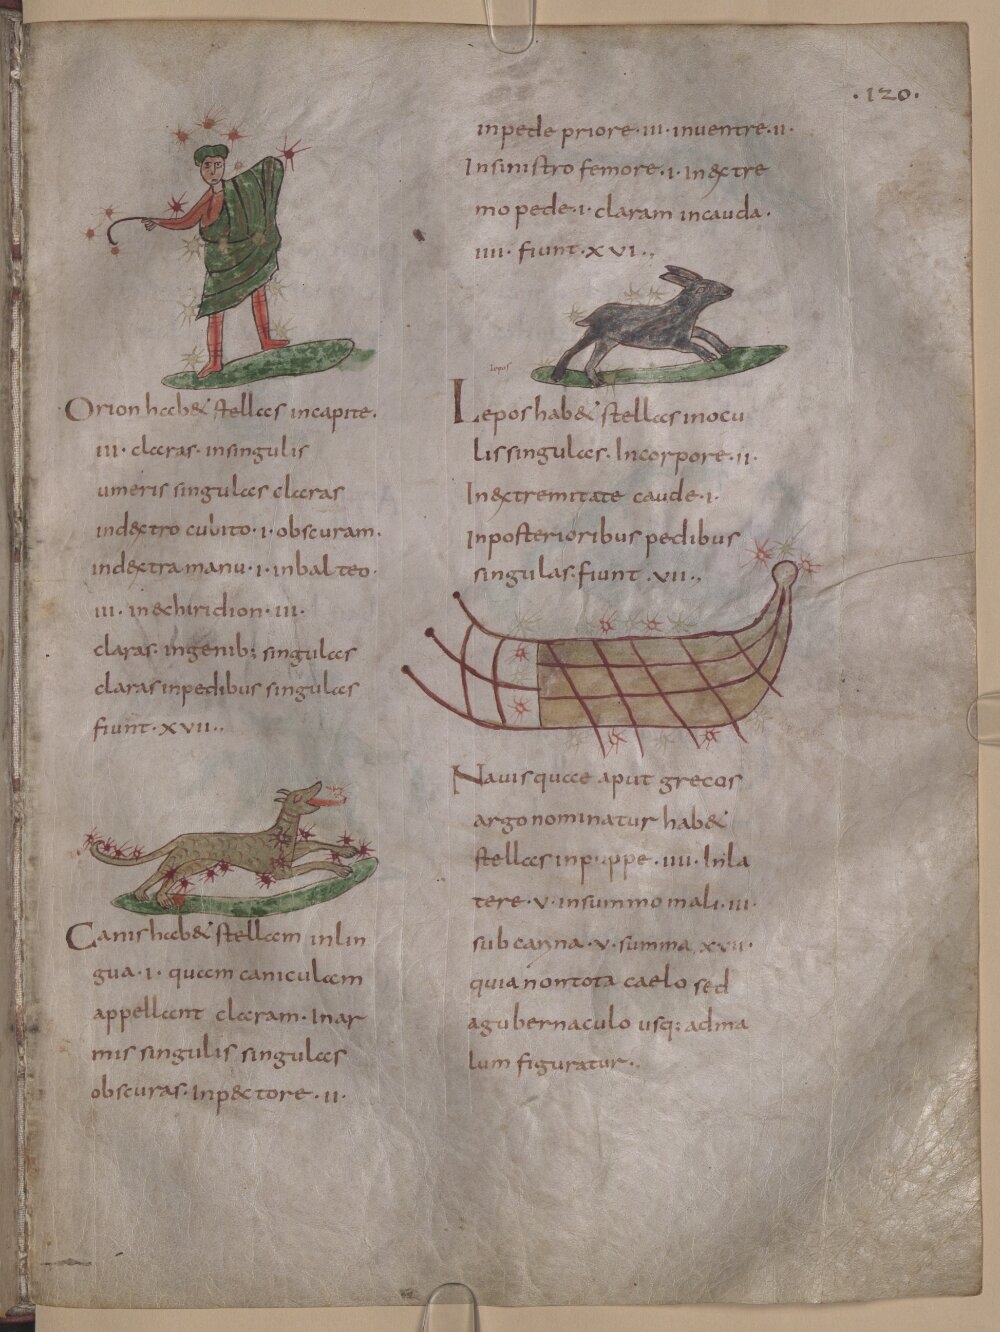 ·120·
Orion hab& stellas incapite.
iii· claras· insingulis
umeris singulas claras
indextro cubito·i·obscuram.
indextramanu·i·inbalteo·
iii· inechiridion·iii·
claras· ingenib; singulas
claras inpedibus singulas
fiunt·xvii·,
Canis hab& stellam inlin
gua·i· quam caniculam
appellant claram· Inar
mis singulis singulas
obscuras· Inp&tore·ii·
inpede priore·iii·inventre·ii·
Insinistro femore·i·Inextre
mo pede·i·claram incauda·
iiii· fiunt·xvi·,
lepos
Lepos hab& stellas inocu
lis singulas· Incorpore·ii·
Inextremitate caude·i·
Inposterioribus pedibus
singulas·fiunt·vii·,
Nauis quae aput grecos
argo nominatur hab&
stellas inpuppe·iiii·Inla
tere·v·insummo mali·iii·
sub carina·v·summa·xvii·
quia non tota caelo sed
a gubernaculo usq; adma
lum figuratur·